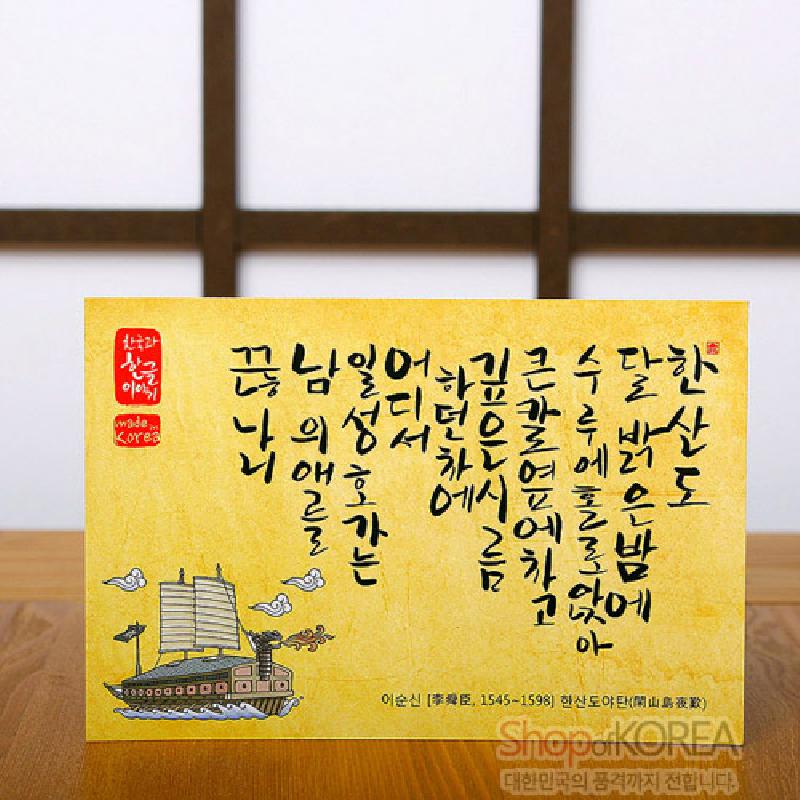 한산도
달 밝은밤에
수루에홀로앉아
큰칼옆에차고
깊은시름
하던차에
어디서
일성호가는
남의애를
끈나니
한국과
한글
이야기
made in
Korea
이순신 [李舜臣, 1545~1598) 한산도야탄(閑山島夜歎)
Shop of KOREA
대한민국의 품격까지 전합니다.